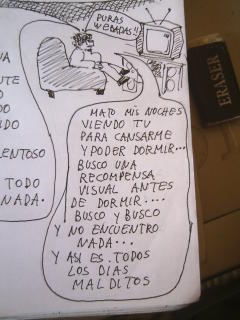 PURAS
WEBADAS!!
MATO MIS NOCHES
VIENDO TV
PARA CANSARME
Y PODER DORMIR...
BUSCO UNA
RECOMPENSA
VISUAL ANTES
DE DORMIR....
BUSCO Y BUSCO
Y NO ENCUENTRO
NADA...
Y ASI ES TODOS
LOS DIAS
MALDITOS
LENTOSO
TODO
NADA.
ERASER